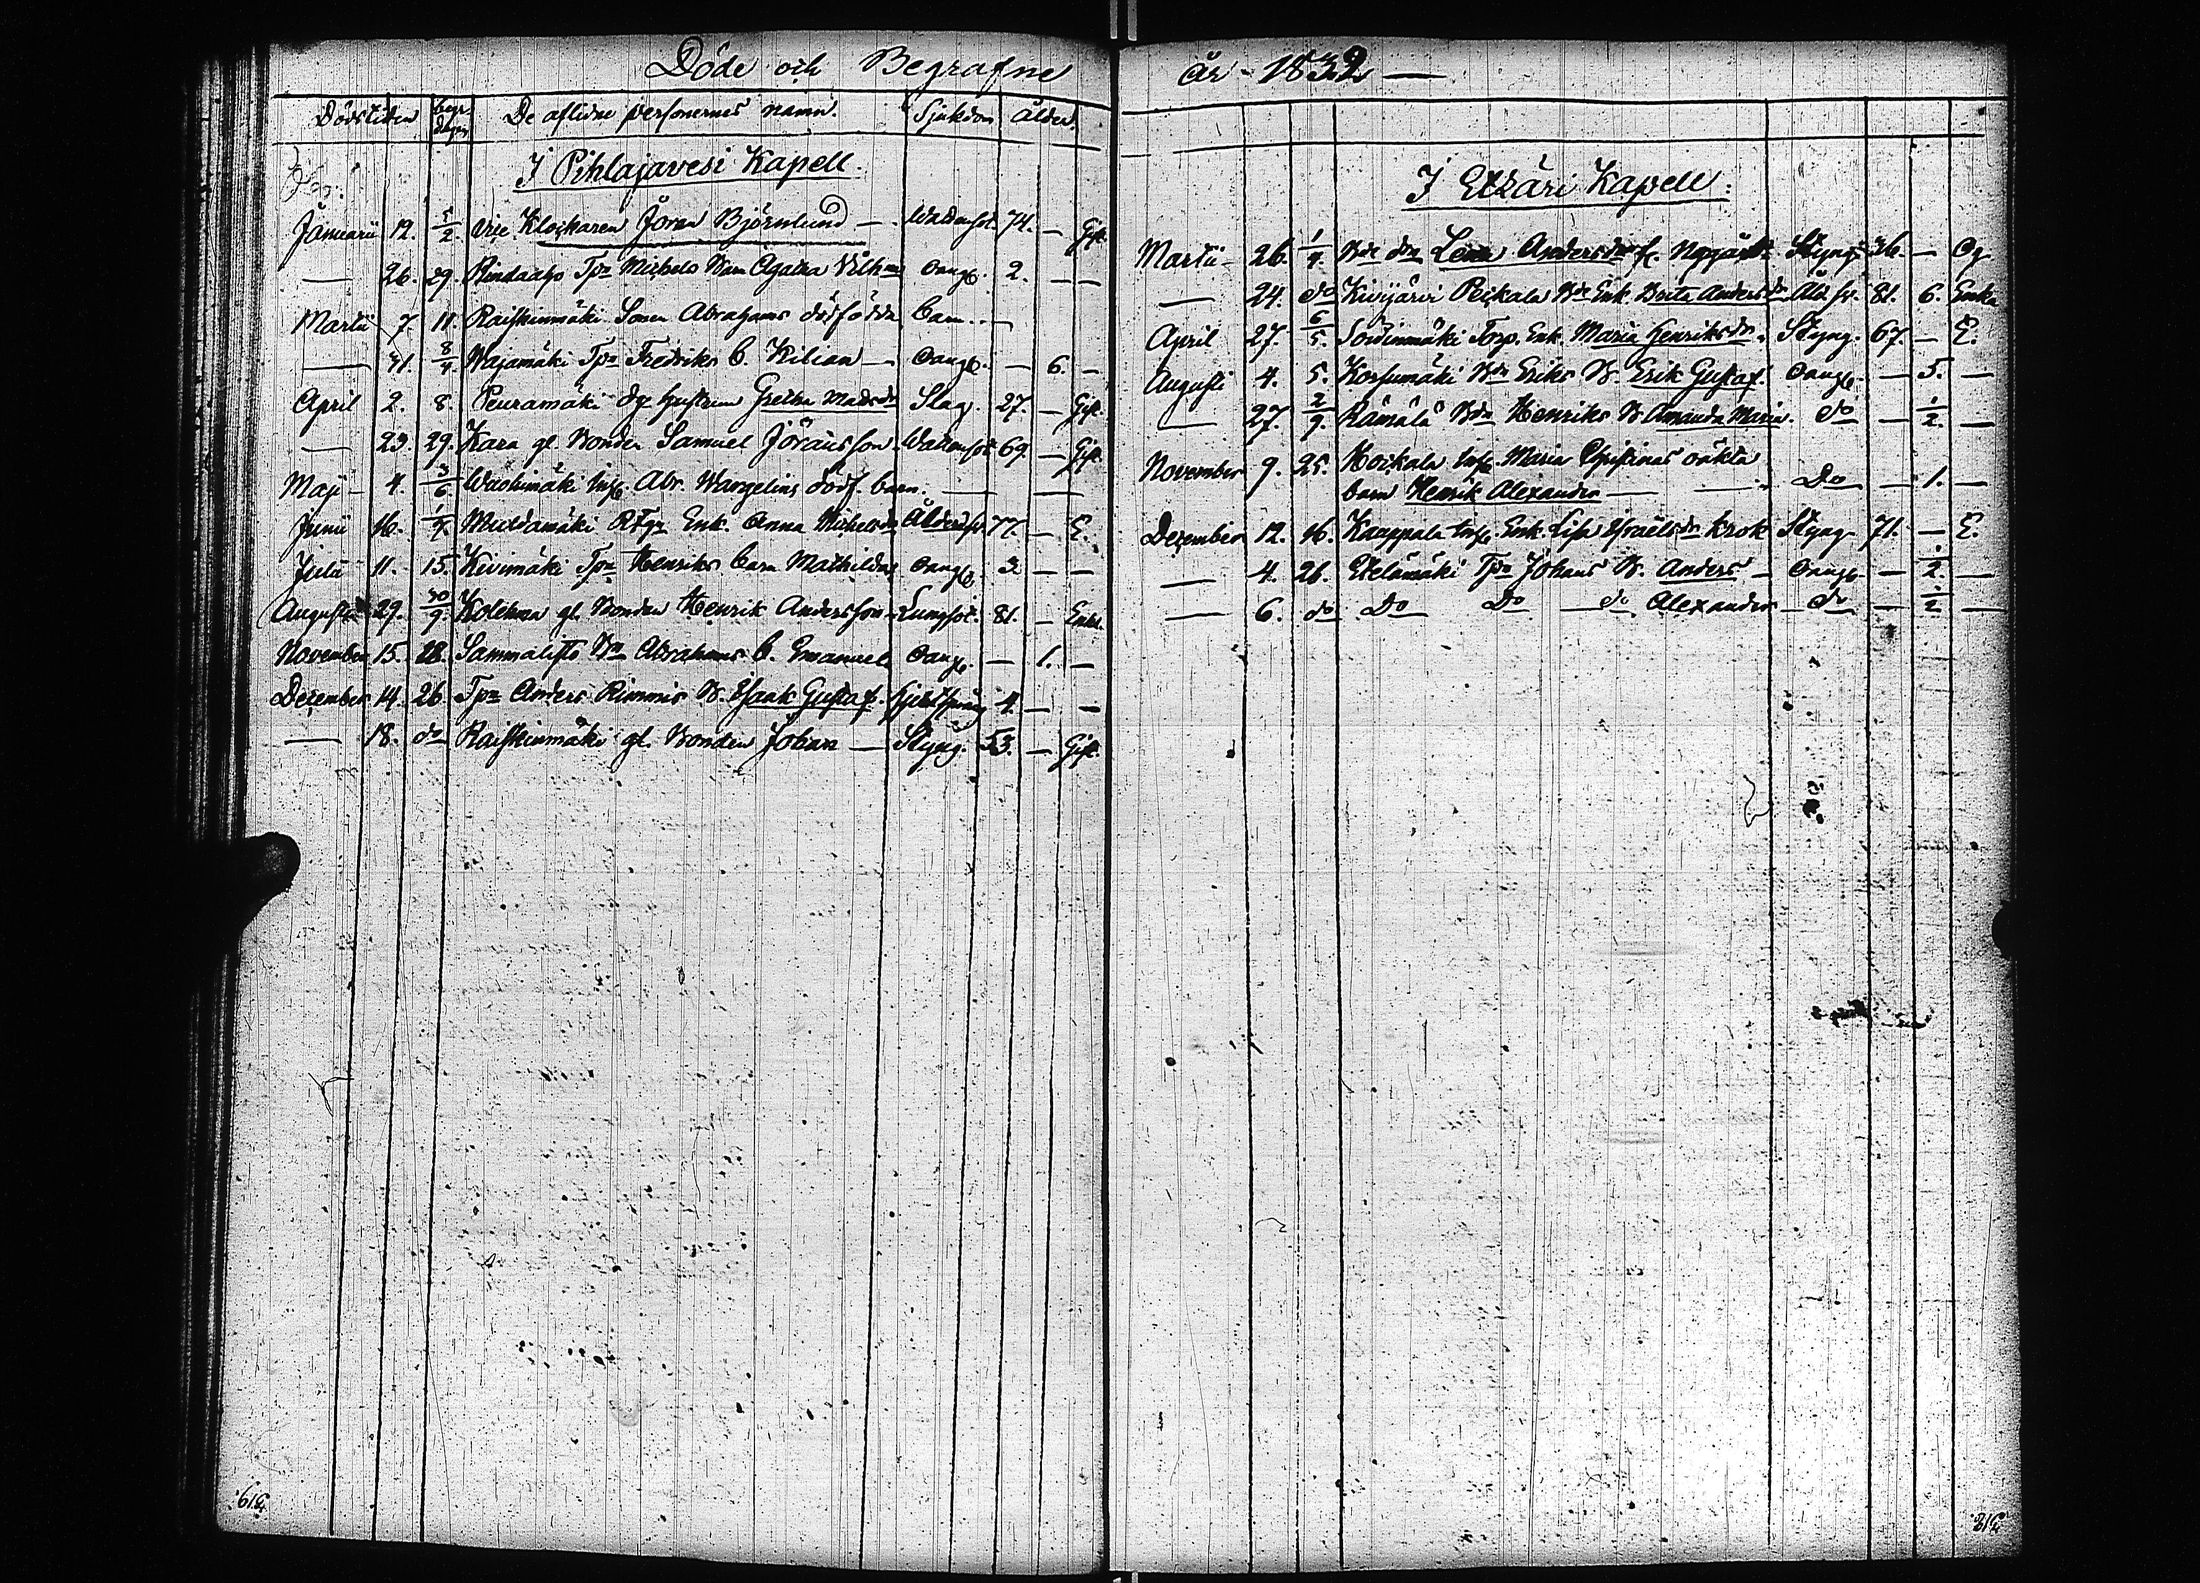 Döde och Begrafne
Dödstiden begr. dagen De aflidne personernes namn. Sjukdom Ålder.
I Pihlajavesi Kapell.
Januarii 12. 5/2. Klockaren Jöran Björnlund — Wattensot. 74. — Gift.
— 26. 29. Rindaaho Tpr Michels Barn Agatha 2. — —
Martii 7. 11. Raiskinmäki Sonen Abrahams dödfödda barn. —
— 31. 8/4. Wajamäki Tpr Fredriks b. Kilian — — 6. —
April 2. 8. Peuramäki hustrun Gretha Madsdr Slag. 27. — Gift.
— 23. 29. Kara gl. Bonden Samuel Jöransson Wattensot 69. — Gift.
Maji — 4. 3/6 Inh. Abr. Wangelins dödf. barn. — —
Junii 16. 1/7. Enk. Anna Michelsdr Ålderdhr 77. — E.
Julii 11. 15. Kivimäki Tpr Henriks barn Mathilda 3 — —
Augusti 29. 30/9. gl. Bonden Henrik Andersson Lungsot. 81. — Enkl.
November 15. 28. Abrahams b. Emanuel — 1. —
December 14. 26. Tpr Anders Rimmis B. Isaak Gustaf. 4. — —
— 18. do Raiskinmäki gl. Bonden Johan — Styng. 53. — Gift.
319.
år 1832 —
I Etzäri Kapell:
Martii 26. 1/4. Bde dr Lena Andersdr Styng 36. — Og
— 24. do Kivijärvi Peckala Bde Enk. Brita Andersdr Åld hr. 81. 6. Enka
April 27. 6/5. Soidinmäki Torp. Enk. Maria Henriksdr. Styng. 67. — E.
Augusti 4. 5. Korsumäki Bdr Eriks B. Erik Gustaf. — 5. —
— 27. 2/9. Rämälä Bdn Henriks B. Amanda Maria. do — 1/2. —
November 9. 25. Inh. Maria oäkta
barn Henrik Alexander — — Do — 1. —
December 12. 16. Kauppala Inh. Enk. Lisa Israelsdr Krok Styng 71. — E.
— 4. 26. Etelämäki Tpr Johans B. Anders — — 1/2. —
— 6. do Do Do — do Alexander — do — 1/2 —
319.